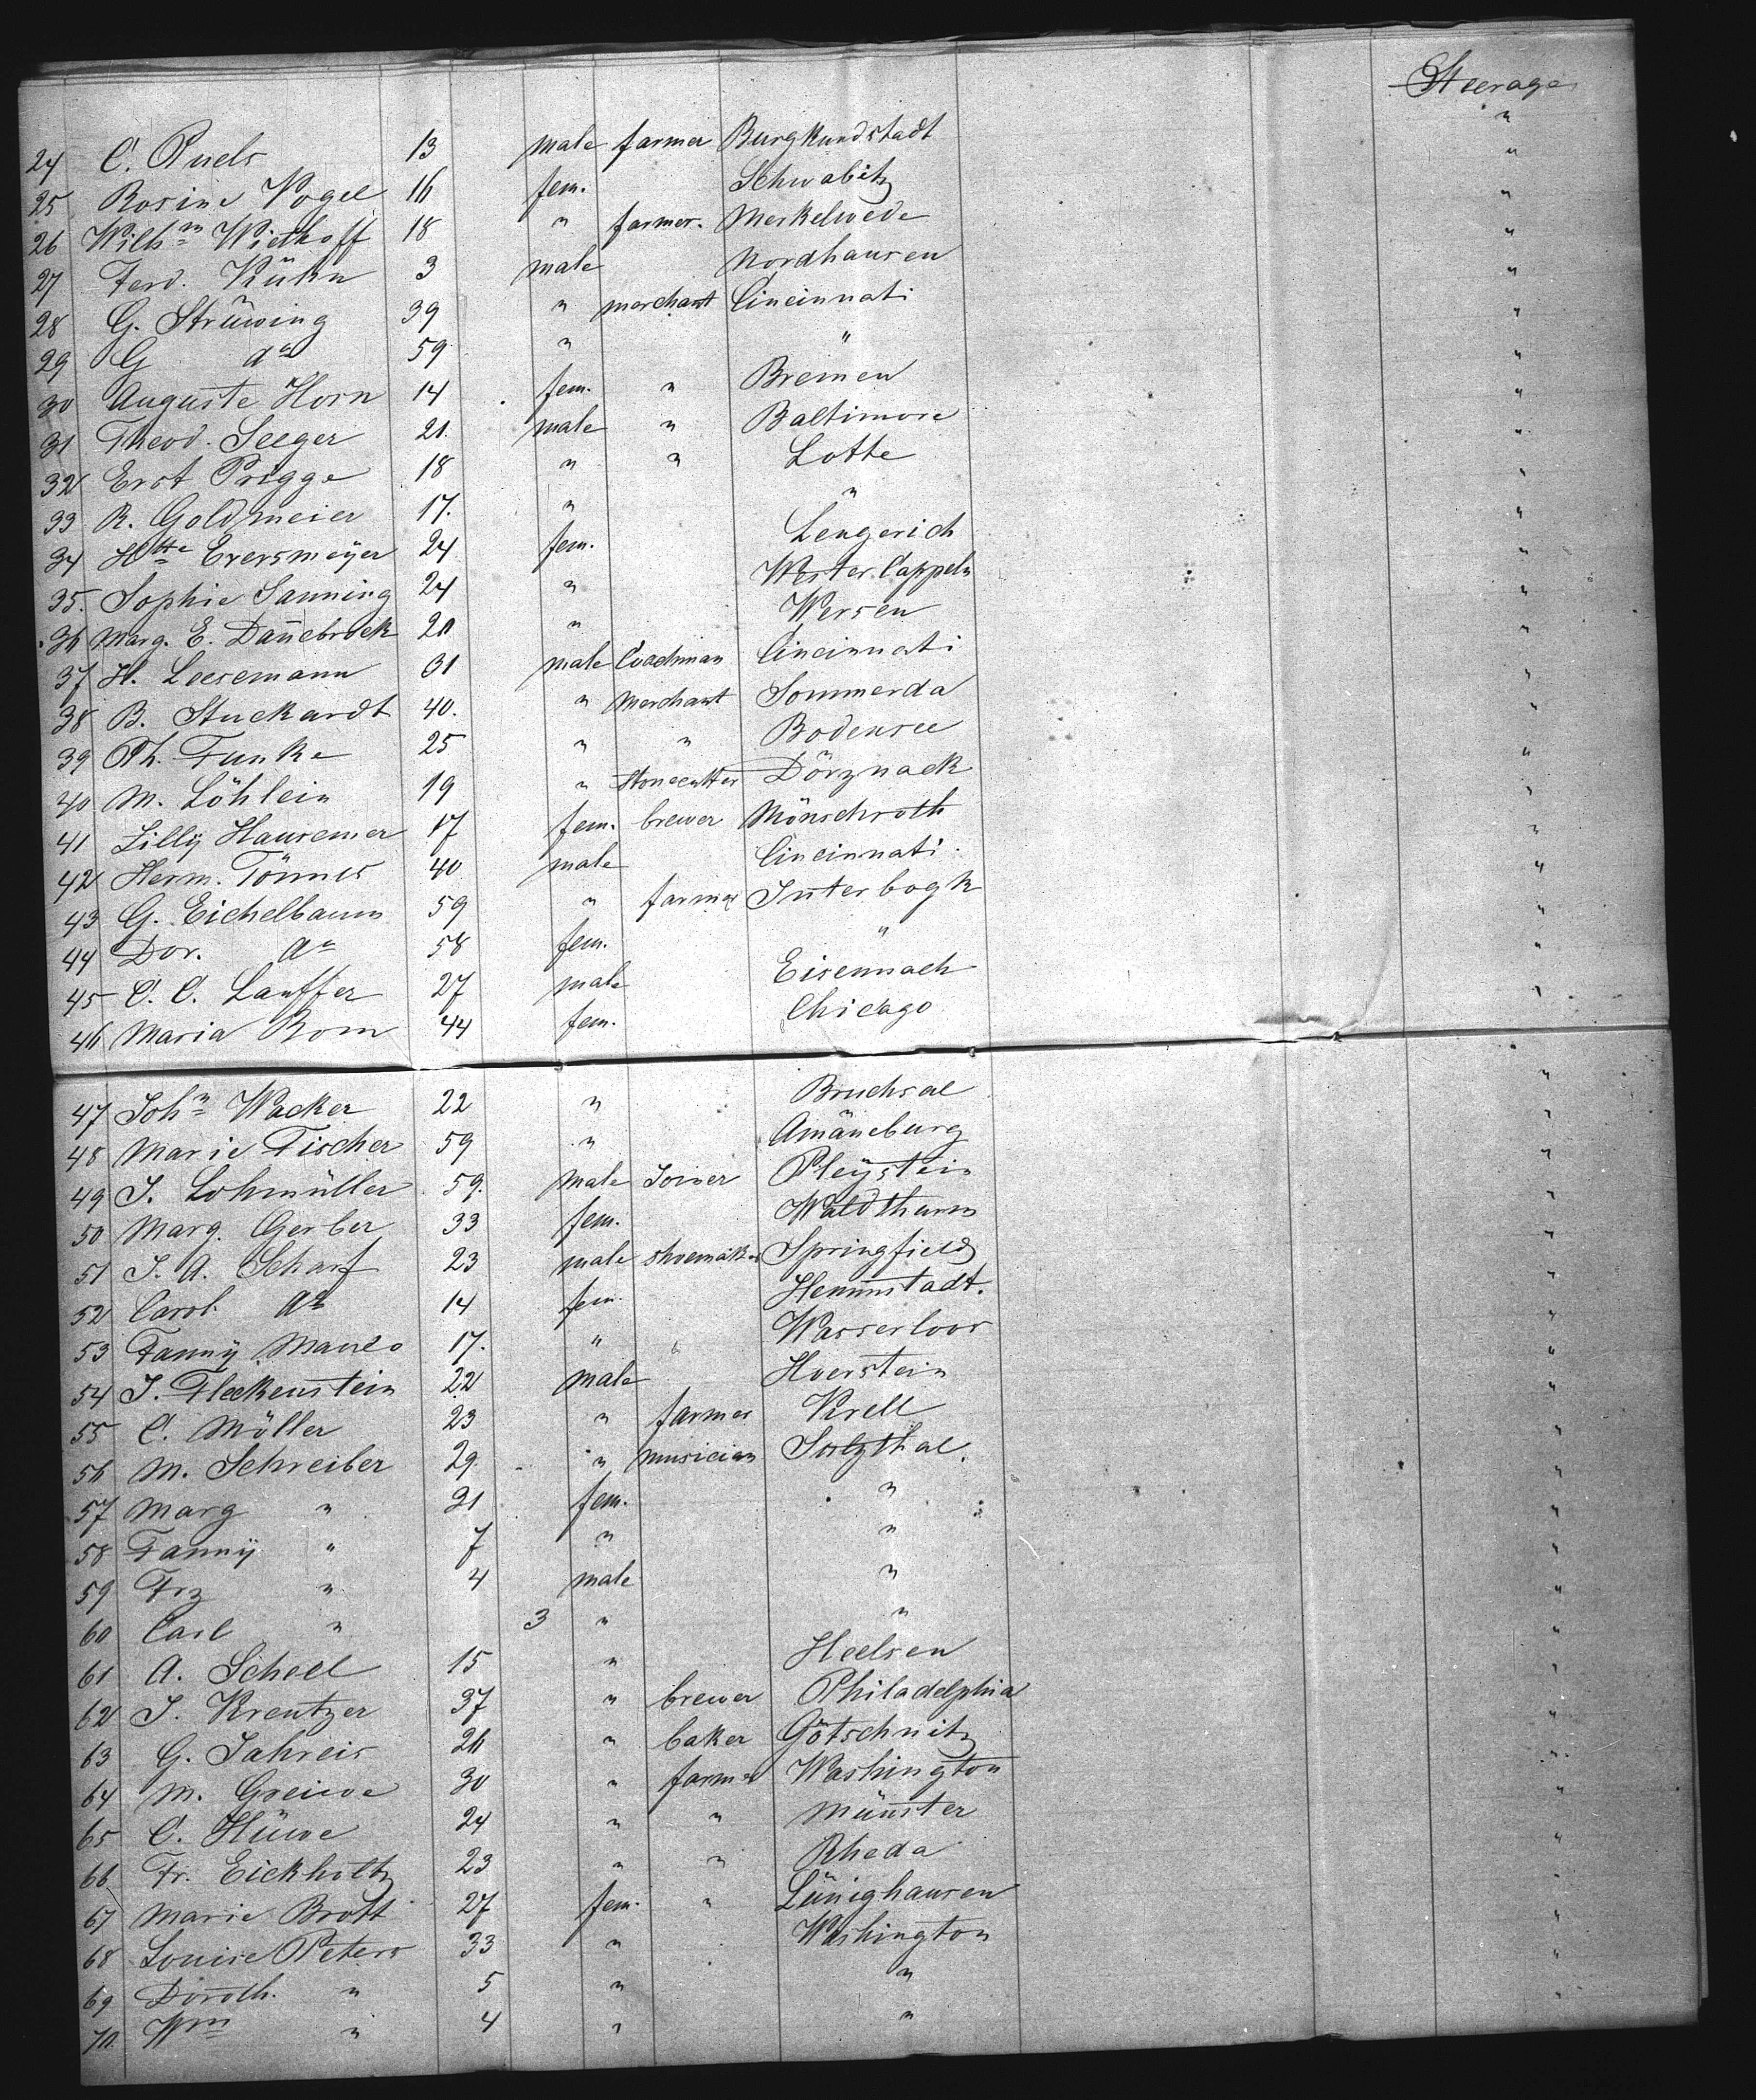 Steerage
24 C. Puels 13 male farmer Burgkundstadt "
25 Rosine Vogel 16 fem. Schwabitz "
26 Wilhm Wielhoff 18 " farmer. Merkelwede "
27 Ferd. Kühn 3 male Nordhausen "
28 G. Strüwing 39 " merchant Cincinnati "
29 G do 59 " " "
30 Auguste Horn 14 fem. " Bremen "
31 Theod. Seeger 21. male " Baltimore "
32 Erst Prigge 18 " " Lotte "
33 R. Goldmeier 17. " " "
34 Htte Eversmeÿer 24 fem. Lengerich "
35. Sophie Sanning 24 " Wester Cappeln "
36 Marg. E. Dan̄ebrock 20 " Wersen "
37 H. Leesemann 31 male Coachman Cincinnati "
38 B. Stuckardt 40. " Merchant Sommerda "
39 Ph. Funke 25 " " Bodensee "
40 M. Löhlein 19 " Stonecutter Dörznack "
41 Lilly Hausemer 17 fem. brewer Mönschroth "
42 Herm. Tönnes 40 male Cincinnati. "
43 G. Eichelbaum 59 " farmer Interbogk "
44 Dor. do 58 fem. " "
45 C. C. Lauffer 27 male Eisennach "
46 Maria Bom 44 fem. Chicago "
47 John Wacker 22 " Bruchsal "
48 Marie Fischer 59 " Amäneburg "
49 J. Lohmüller 59. male Joiner Pleÿstein "
50 Marg. Gerber 33 fem. Waldthurn "
51 J. A. Scharf 23 male shoemaker Springfield "
52 Carol. do 14 fem. Hemmstadt. "
53 Fannÿ 17. " Wasserloos "
54 J. Fleckenstein 22 male Hoerstein "
55 C. Möller 23 " farmer Krell "
56 M. Schreiber 29. " musician Salzthal. "
57 Marg " 31 fem. " "
58 Fannÿ " 7 " " "
59 Frz " 4 male " "
60 Carl " 3 " " "
61 A. Scheel 15 " Heelsen "
62 J. Kreutzer 37 " brewer Philadelphia "
63 G. Jahreis 26 " baker Götschnitz "
64 M. Greiwe 30 " farmer Washington "
65 C. Hüwe 24 " " Münster "
66 Fr. Eickholtz 23 " " Rheda "
67 Marie Brott 27 fem. " Lünighausen "
68 Louise Peters 33 " Washington "
69 Doroth. " 5 " " "
70 Wm " 4 " " "